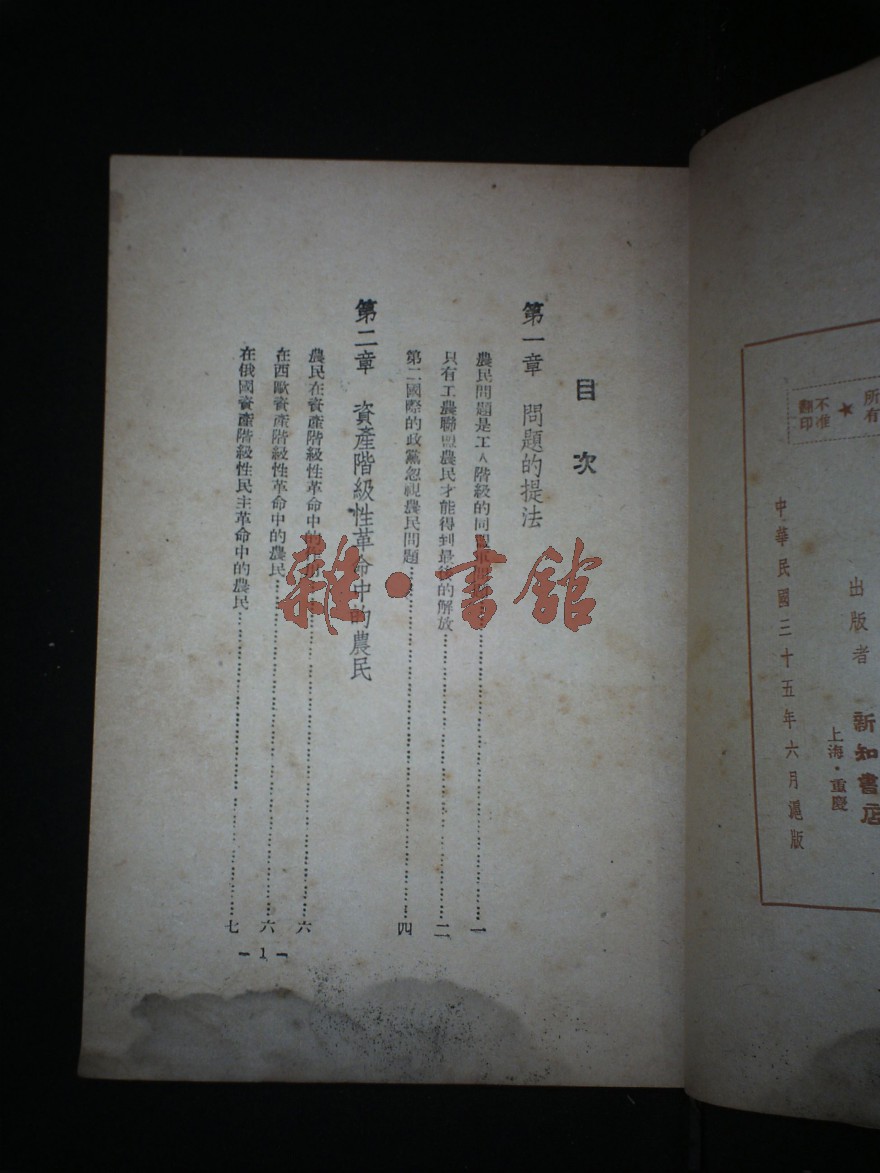 目次
第一章 問題的提法
農民問題是工人階級的同盟軍
一
只有工農聯盟農民才能得到最後的解放
二
第二國際的政黨忽視農民問題
四
第二章 資產階級性革命中的農民
農民在資產階級性革命中的
六
在西歐資產階級性革命中的農民
六
在俄國資產階級性民主革命中的農民
七
-1-
雜·書館
所有
★
不准翻印
出版者 新知書店
上海·重慶
中華民國三十五年六月滬版